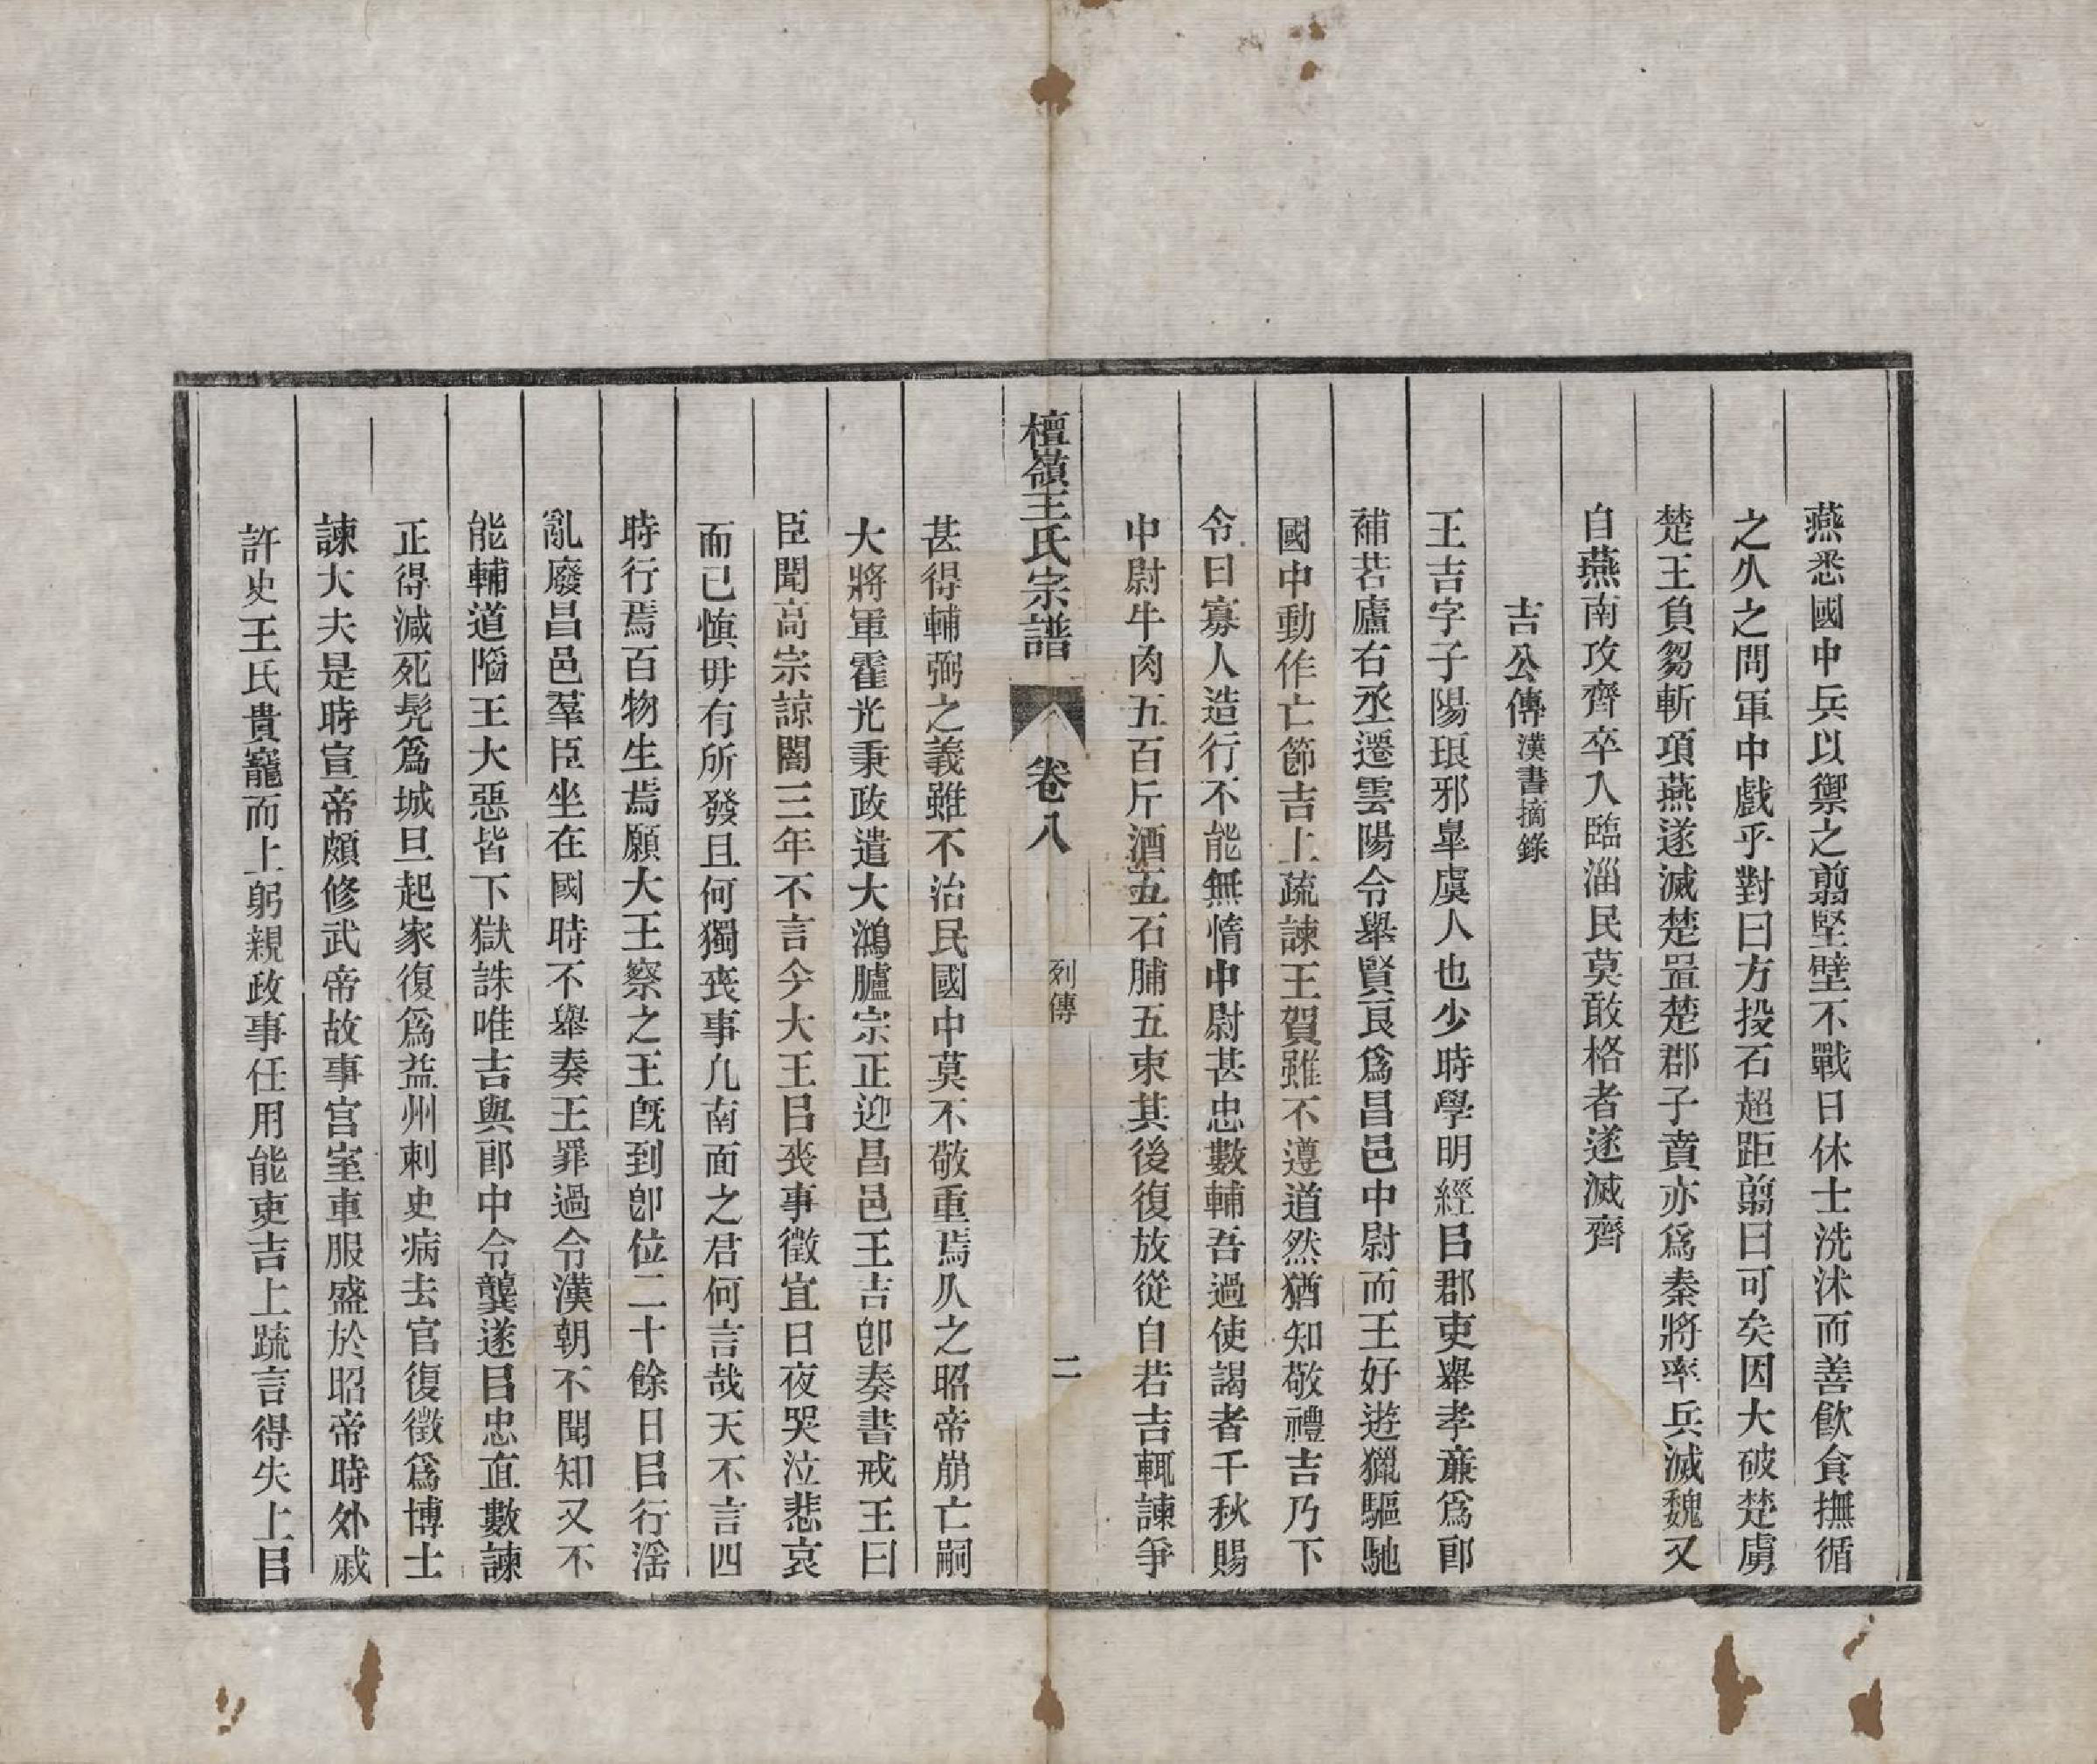 燕悉國中兵以禦之翦堅壁不戰日休士洗沐而善飮食撫循
之久之問軍中戲乎對曰方投石超距翦曰可矣因大破楚虜
楚王負芻斬項燕遂滅楚置楚郡子賁亦爲秦將率兵滅魏又
自燕南攻齊卒入臨淄民莫敢格者遂滅齊
吉公傳漢書摘錄
王吉字子陽琅邪皐虞人也少時學明經㠯郡吏舉孝廉爲郎
補若盧右丞遷雲陽令舉賢良爲昌邑中尉而王好遊獵驅馳
國中動作亡節吉上疏諫王賀雖不遵道然猶知敬禮吉乃下
令曰寡人造行不能無惰中尉甚忠數輔吾過使謁者千秋賜
中尉牛肉五百斤酒五石脯五束其後復放從自若吉輒諫爭
檀嶺王氏宗譜 卷八 列傳 二
甚得輔弼之義雖不治民國中莫不敬重焉久之昭帝崩亡嗣
大將軍霍光秉政遣大鴻臚宗正迎昌邑王吉卽奏書戒王曰
臣聞高宗諒闇三年不言今大王㠯喪事徵宜日夜哭泣悲哀
而已愼毋有所發且何獨喪事凡南面之君何言哉天不言四
時行焉百物生焉願大王察之王旣到卽位二十餘日㠯行淫
亂廢昌邑羣臣坐在國時不舉奏王罪過令漢朝不聞知又不
能輔道陷王大惡皆下獄誅唯吉與郎中令龔遂㠯忠直數諫
正得減死髡爲城旦起家復爲益州刺史病去官復徵爲博士
諫大夫是時宣帝頗修武帝故事宮室車服盛於昭帝時外戚
許史王氏貴寵而上躬親政事任用能吏吉上疏言得失上㠯